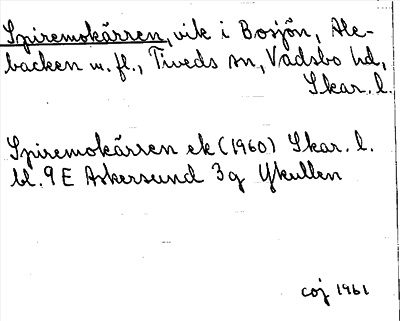 Spiremokärren, vik i Bosjön, Ale-
backen m. fl., Tiveds sn, Vadsbo hd,
Skar. l.
Spiremokärren ek (1960) Skar. l.
bl. 9 E Askersund 3 g Ykullen
coj 1961